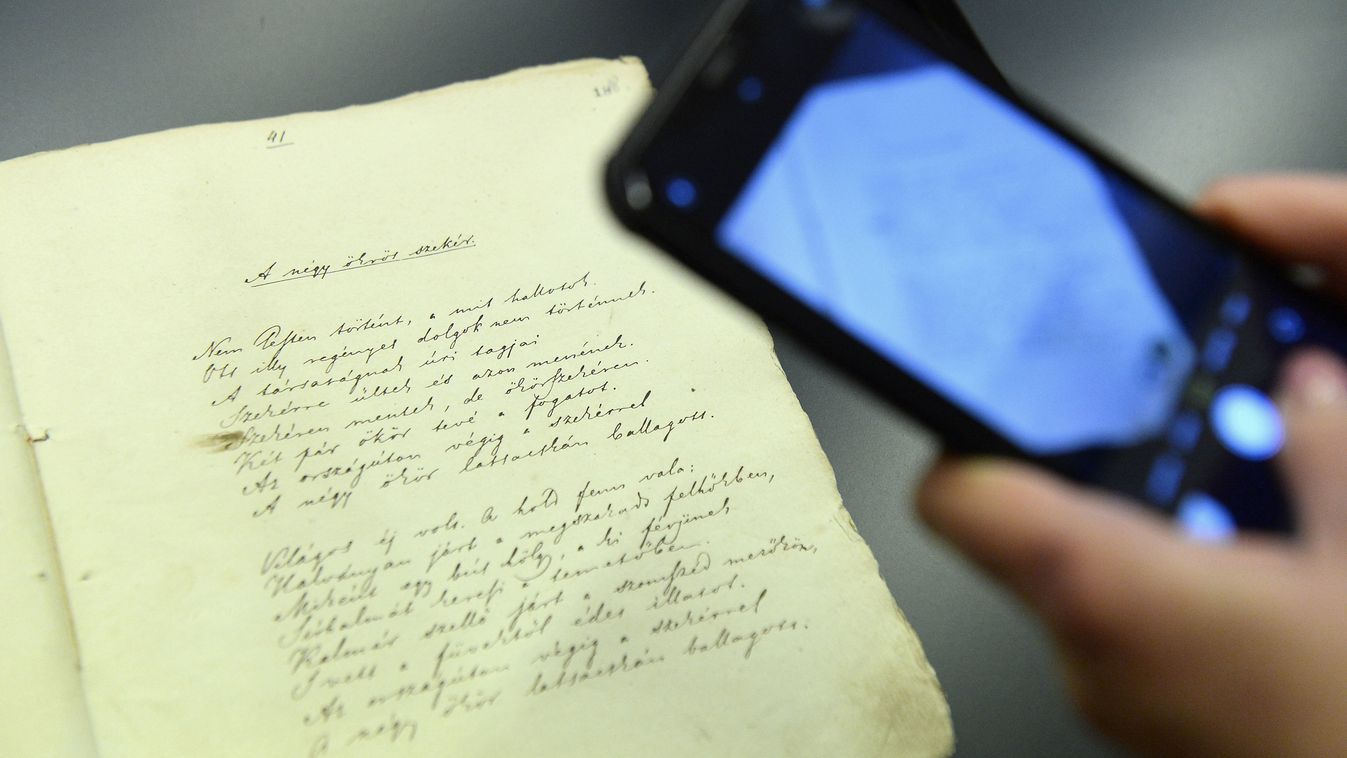 41
A négy ökrös szekér.
Nem Pesten történt, a mit hallotok.
Ott illy regényes dolgok nem történnek.
A társaságnak úri tagjai
Szekérre ültek és azon menének.
Szekéren mentek, de ökörszekéren.
Két pár ökör tevé a fogatot.
Az országúton végig a szekérrel
A négy ökör lassacskán ballagott.
Világos éj volt. A hold fenn vala;
Halványan járt a megszakadt felhőkben,
Miként egy bús hölgy, a ki férjének
Sirhalmát keresi a temetőben.
Kalmár szellő járt a szomszéd mezőkön,
S vett a füvektől édes illatot.
Az országúton végig a szekérrel
A négy ökör lassacskán ballagott.
A négy